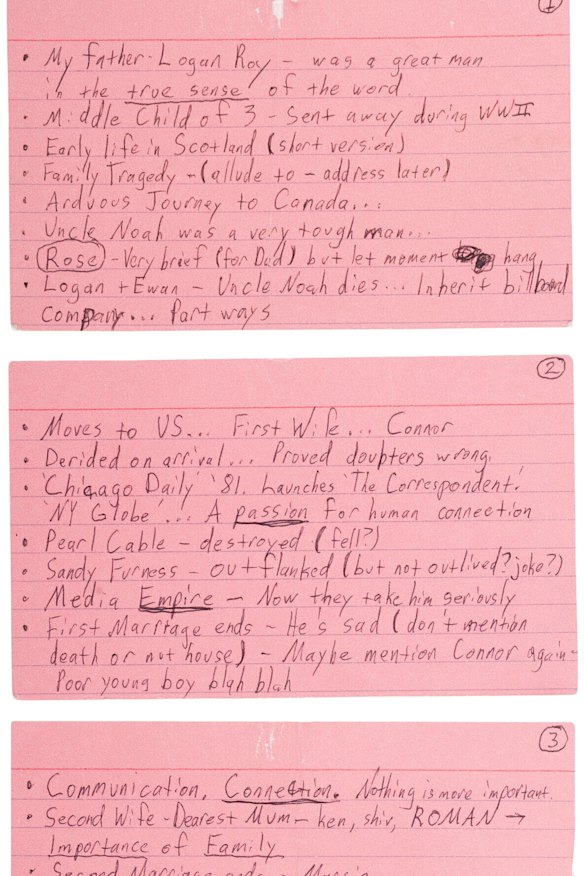 1
• My father - Logan Roy - was a great man
in the true sense of the word
• Middle Child of 3 - Sent away during WWII
• Early life in Scotland (short version)
• Family Tragedy - (allude to - address later)
• Arduous Journey to Canada...
• Uncle Noah was a very tough man...
• Rose - Very brief (for Dad) but let moment hang
• Logan + Ewan - Uncle Noah dies... Inherit billboard
Company... Part ways
2
• Moves to US... First Wife... Connor
• Derided on arrival... Proved doubters wrong.
• 'Chicago Daily' '81. Launches 'The Correspondent.'
'NY Globe'... A passion for human connection
• Pearl Cable - destroyed (fell?)
• Sandy Furness - outflanked (but not outlived? joke?)
• Media Empire - Now they take him seriously
• First Marriage ends - He's sad (don't mention
death or nut house) - Maybe mention Connor again -
Poor young boy blah blah
3
• Communication, Connection. Nothing is more important.
• Second Wife - Dearest Mum - ken, shiv, ROMAN →
Importance of Family
• Second Marriage ends -